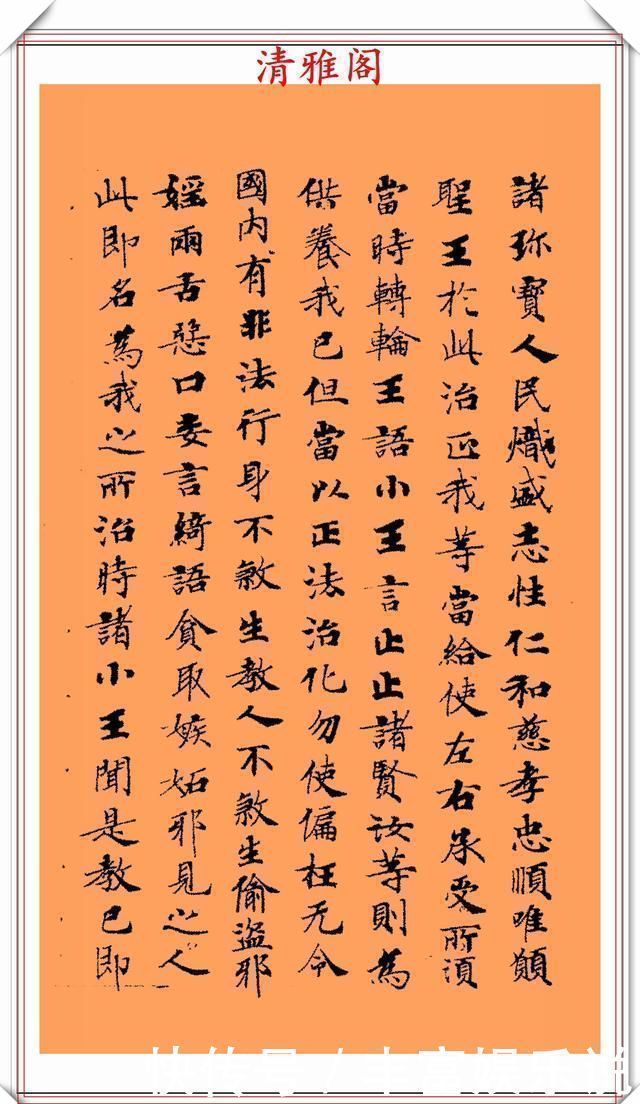 清雅阁
諸珎寳人民熾盛志性仁和慈孝忠順唯願
聖王於此治正我等當給使左右承受所須
當時轉輪王語小王言止止諸賢汝等則為
供養我已但當以正法治化勿使偏枉无令
國内有非法行身不煞生教人不煞生偷盜邪
婬兩舌惡口妄言綺語貪取嫉妬邪見之人
此即名為我之所治時諸小王聞是教已即
快传号